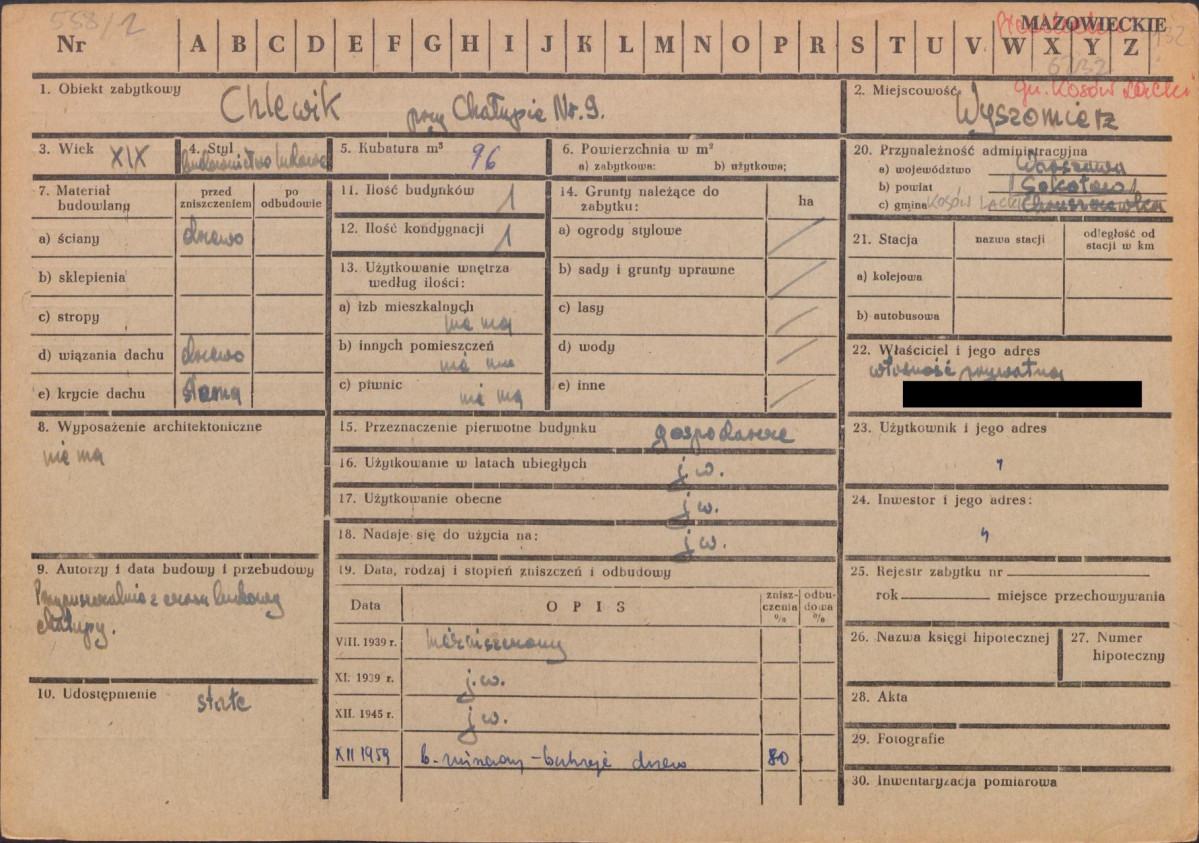 558/2
MAZOWIECKIE
Nr A B C D E F G H I J K L M N O P R S T U V W X Y Z
gm. Kosów Lacki
1. Obiekt zabytkowy
Chlewik przy Chałupie Nr. 9.
2. Miejscowość
Wyszomierz
3. Wiek XIX
4. Styl
budownictwo ludowe
5. Kubatura m³ 96
6. Powierzchnia w m²
a) zabytkowa: b) użytkowa;
20. Przynależność administracyjna
a) województwo Warszawa
b) powiat Sokołów
c) gmina KOSÓW LACKI
7. Materiał budowlany
przed zniszczeniem
po odbudowie
a) ściany drzewo
b) sklepienia
c) stropy
d) wiązania dachu drzewo
e) krycie dachu słoma
11. Ilość budynków 1
12. Ilość kondygnacji 1
13. Użytkowanie wnętrza
według ilości:
a) izb mieszkalnych
nie ma
b) innych pomieszczeń
nie ma
c) piwnic nie ma
14. Grunty należące do
zabytku:
ha
a) ogrody stylowe
b) sady i grunty uprawne
c) lasy
d) wody
e) inne
21. Stacja
nazwa stacji
odległość od
stacji w km
a) kolejowa
b) autobusowa
22. Właściciel i jego adres
własność prywatna
8. Wyposażenie architektoniczne
nie ma
15. Przeznaczenie pierwotne budynku gospodarcze
16. Użytkowanie w latach ubiegłych j.w.
17. Użytkowanie obecne j.w.
18. Nadaje się do użycia na: j.w.
23. Użytkownik i jego adres
24. Inwestor i jego adres:
9. Autorzy i data budowy i przebudowy
Przypuszczalnie z czasu budowy
chałupy.
10. Udostępnienie stałe
19. Data, rodzaj i stopień zniszczeń i odbudowy
Data
OPIS
znisz-
czenia
%
odbu-
dowa
%
VIII. 1939 r. niezniszczony
XI. 1939 r. j.w.
XII. 1945 r. j.w.
XII 1959 b. zniszczony - butwieje drzewo 80
25. Rejestr zabytku nr
rok miejsce przechowywania
26. Nazwa księgi hipotecznej
27. Numer
hipoteczny
28. Akta
29. Fotografie
30. Inwentaryzacja pomiarowa